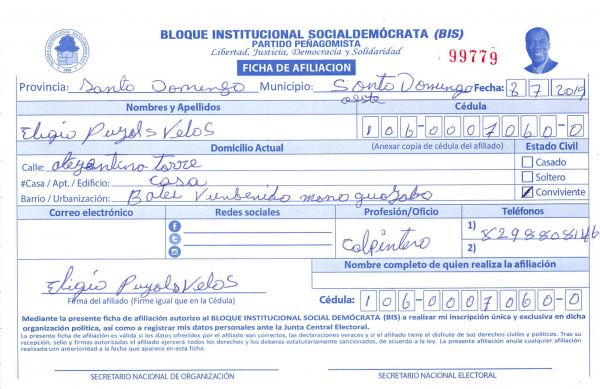 BLOQUE INSTITUCIONAL SOCIALDEMÓCRATA (BIS)
PARTIDO PEÑAGOMISTA
Libertad, Justicia, Democracia y Solidaridad
99779
FICHA DE AFILIACION
Provincia: Santo Domingo Municipio: Santo Domingo oeste Fecha: 8 7 2019
Nombres y Apellidos Cédula
Eligio Puyols Velos 106-0007060-0
Domicilio Actual (Anexar copia de cédula del afiliado) Estado Civil
Calle: torre Casado
#Casa / Apt. / Edificio: casa Soltero
Barrio / Urbanización: mano guayabo Conviviente
Correo electrónico Redes sociales Profesión/Oficio Teléfonos
Calpintero
1) 8298808146
2)
Nombre completo de quien realiza la afiliación
Eligio Puyols Velos
Firma del afiliado (Firme igual que en la Cédula) Cédula: 106-0007060-0
Mediante la presente ficha de afiliación autorizo al BLOQUE INSTITUCIONAL SOCIAL DEMÓCRATA (BIS) a realizar mi inscripción única y exclusiva en dicha
organización política, así como a registrar mis datos personales ante la Junta Central Electoral.
La presente ficha de afiliación es válida si los datos ofrecidos por el afiliado son correctos, las declaraciones veraces y si el afiliado tiene el disfrute de sus derechos civiles y políticos. Tras su
recepción, sello y firmas autorizadas el afiliado ejercerá todos los derechos y los deberes estatutariamente sancionados, de acuerdo a la ley. La presente afiliación anula cualquier afiliación
realizada con anterioridad a la fecha que aparece en esta ficha.
SECRETARIO NACIONAL DE ORGANIZACIÓN SECRETARIO NACIONAL ELECTORAL